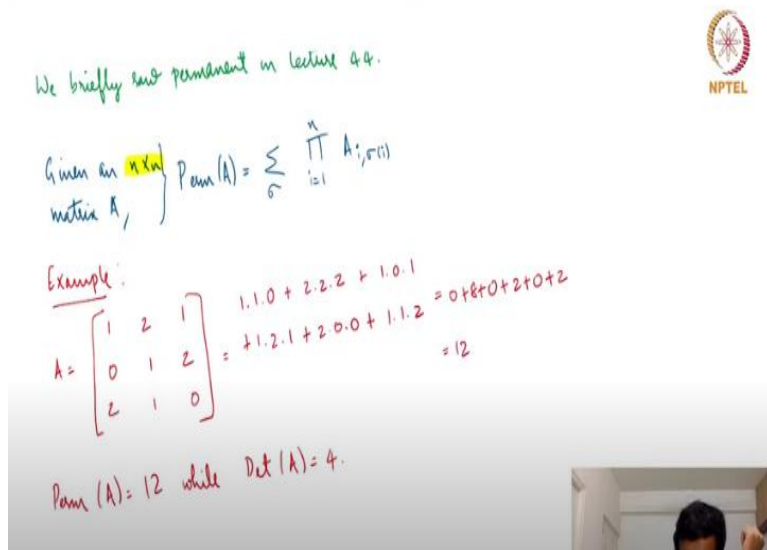 We briefly saw permanent in lecture 44.
NPTEL
Given an n×n
matrix A,
Perm(A) = Σ_σ ∏_{i=1}^{n} A_{i,σ(i)}
Example:
A = [1 2 1
0 1 2
2 1 0]
= 1.1.0 + 2.2.2 + 1.0.1
+ 1.2.1 + 2.0.0 + 1.1.2 = 0+8+0+2+0+2
= 12
Perm (A) = 12 while Det (A) = 4.